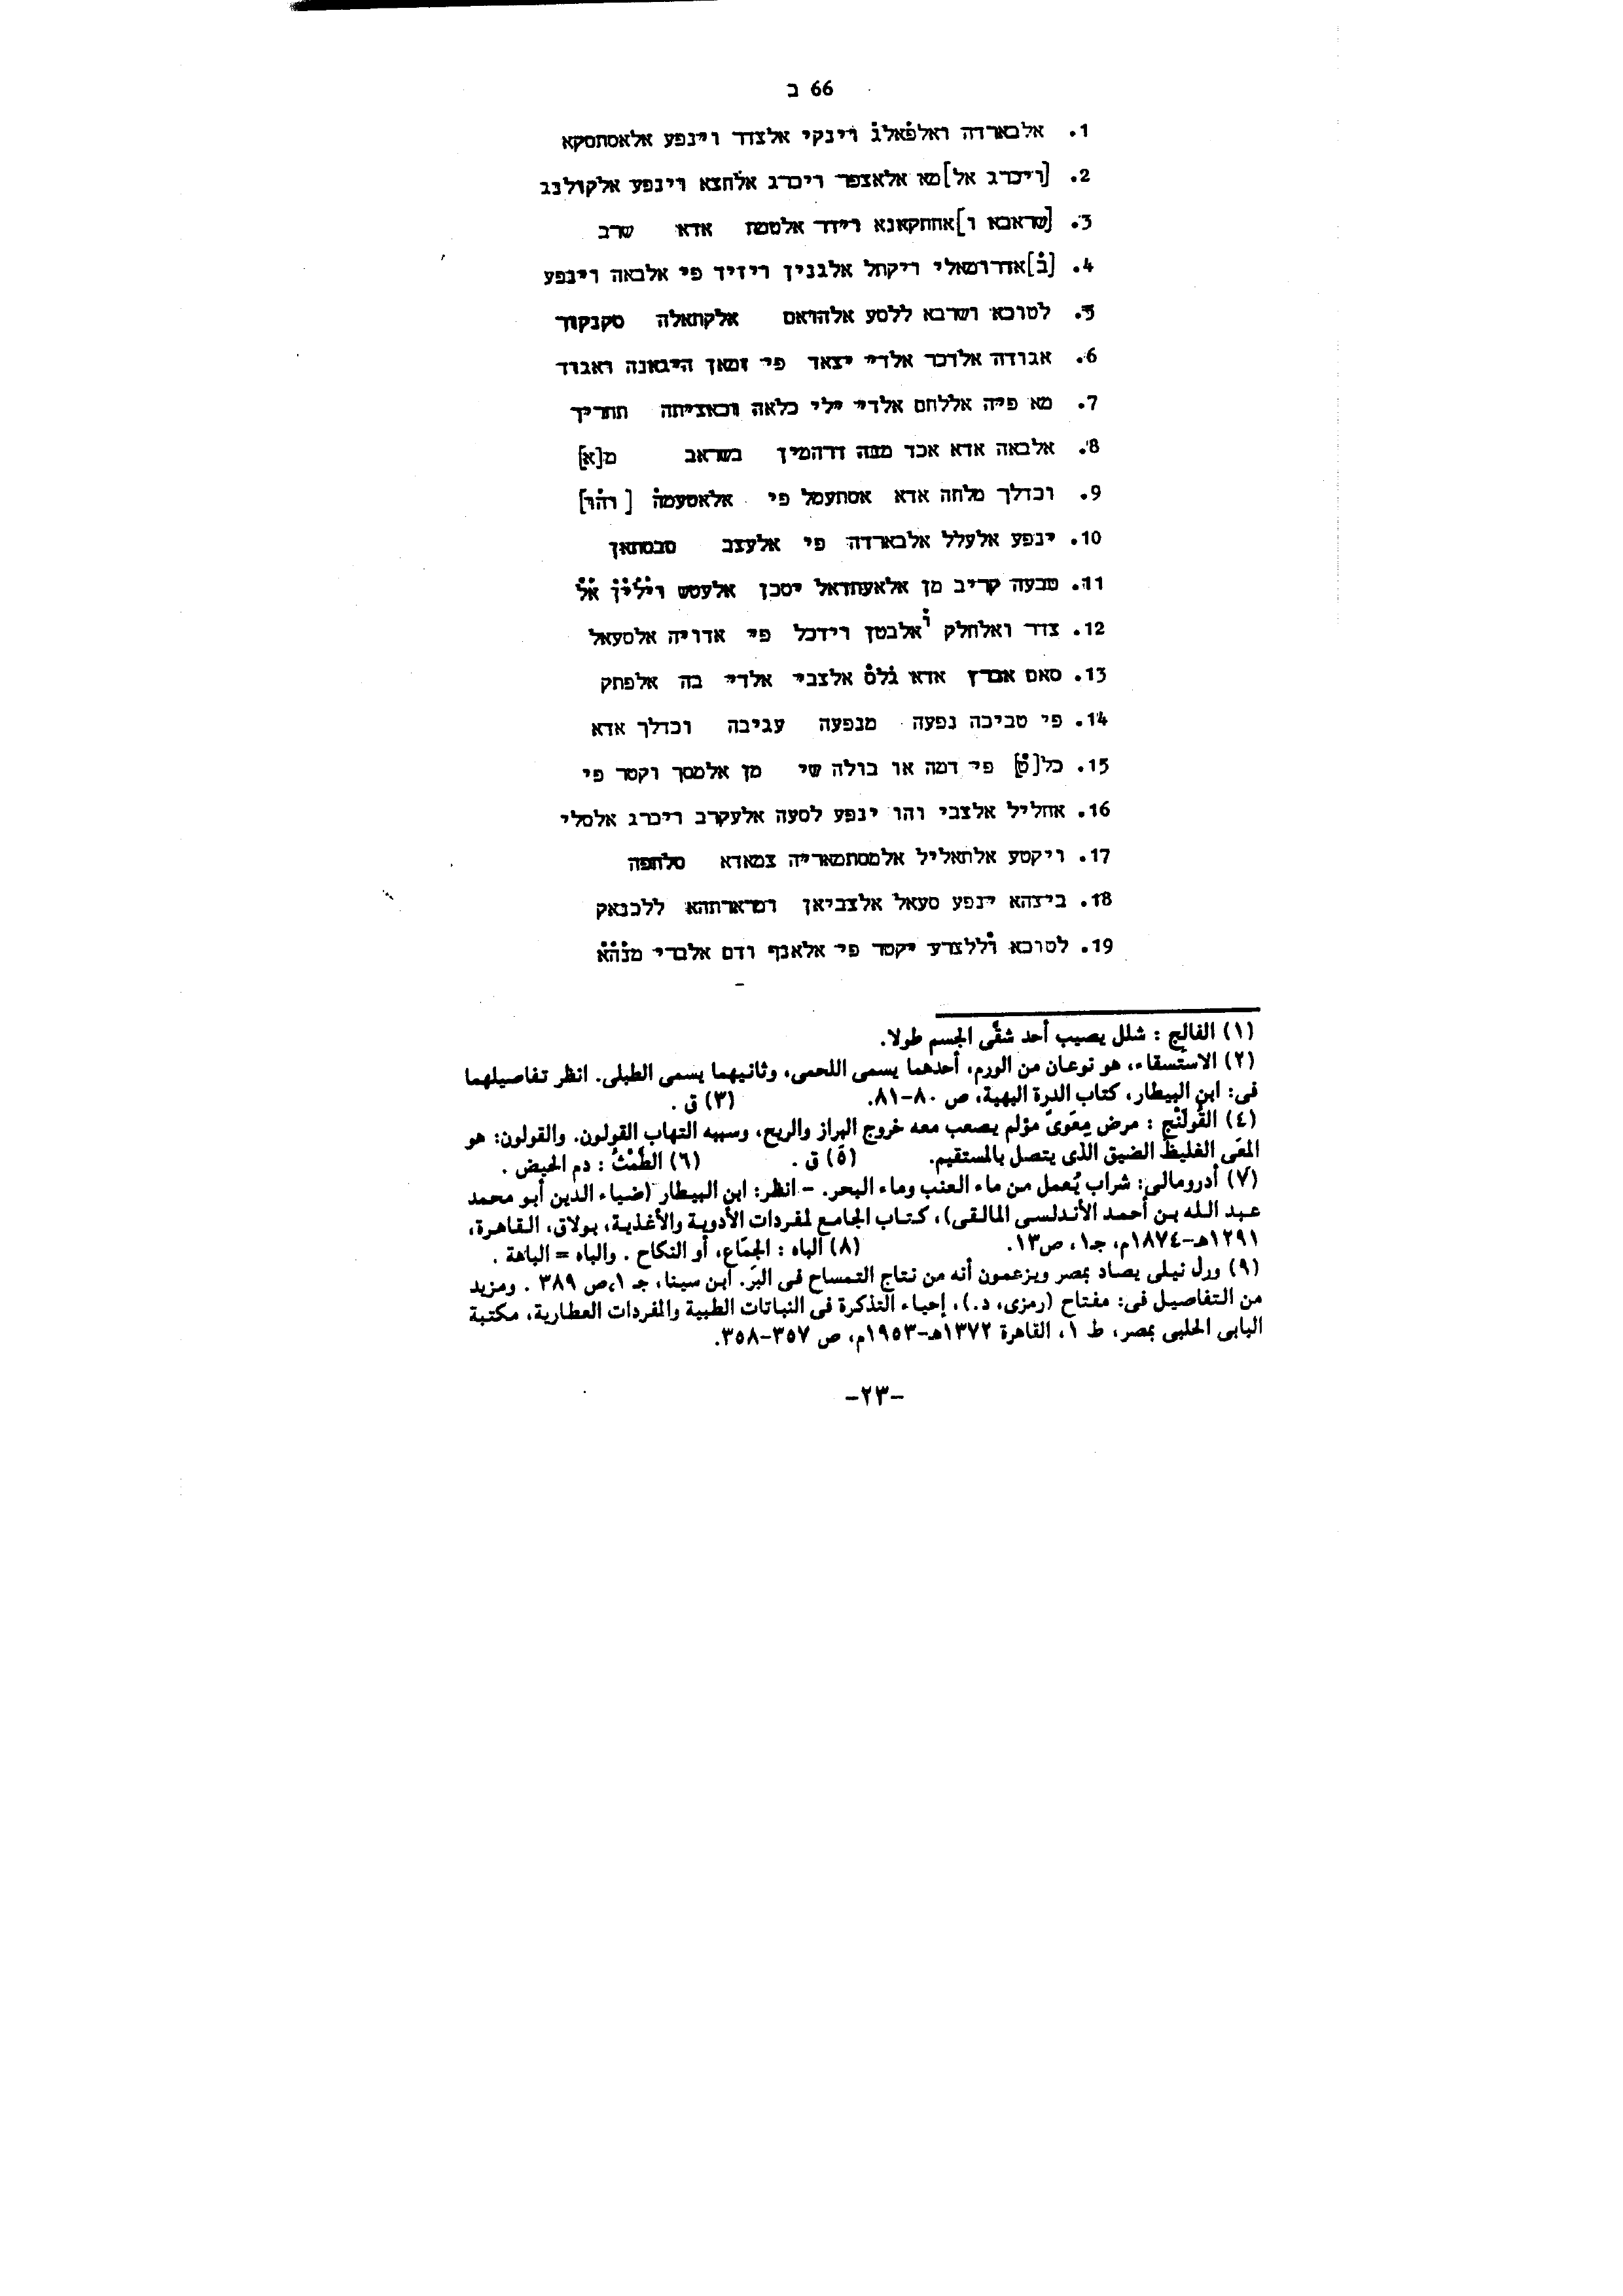 66 ב
1. אלבארדה ואלפ̇אלג̇ וינקי אלצדר וינפע אלאסתסקא
2. [ויכרג אל]מא אלאצפר ויכרג אלחצא וינפע אלקולנג
3. [שראבא ו]אחתקאנא וידר אלטמת אדא שרב
4. [ב̇]אדרומאלי ויקתל אלגנין ויזיד פי אלבאה וינפע
5. לטוכא ושרבא ללסע אלהואם אלקתאלה סקנקור
6. אגודה אלדכר אלדי יצאד פי זמאן היגאנה ואגוד
7. מא פיה אללחם אלדי ילי כלאה וכאציתה תחריך
8. אלבאה אדא אכד מנה דרהמין בשראב מ[א]
9. וכדלך מלחה אדא אסתעמל פי אלאטעמה̇ [והו̇]
10. ינפע אלעלל אלבארדה פי אלעצב סבסתאן
11. טבעה קריב מן אלאעתדאל יסכן אלעטש וי̈ל̇י̇ן̈ א̈ל̇
12. צדר ואלחלק ו̇אלבטן וידכל פי אדויה אלסעאל
13. סאם אברץ אדא ג̇לס̇ אלצבי אלדי בה אלפתק
14. פי טביכה נפעה מנפעה עגיבה וכדלך אדא
15. כל[ט̇] פי דמה או בולה שי מן אלמסך וקטר פי
16. אחליל אלצבי והו ינפע לסעה אלעקרב ויכרג אלסלי
17. ויקטע אלתאליל אלמסתמאריה צמאדא סלחפה
18. ביצהא ינפע סעאל אלצביאן ומרארתהא ללכנאק
19. לטוכא ו̇ללצרע יקטר פי אלאנף ודם אלברי מנ̇ה̇א̇
(١) الفالج : شلل يصيب أحد شقَّى الجسم طولا.
(٢) الاستسقاء، هو نوعان من الورم، أحدهما يسمى اللحمى، وثانيهما يسمى الطبلى. انظر تفاصيلهما
فى: ابن البيطار، كتاب الدرة البهية، ص ٨٠-٨١. (٣) ق .
(٤) القُولَنْج : مرض مِعَوىّ مؤلم يصعب معه خروج البراز والريح، وسببه التهاب القولون. والقولون: هو
المعَى الغليظ الضيق الذى يتصل بالمستقيم. (٥) ق . (٦) الطَّمْثُ : دم الحيض .
(٧) أدرومالى: شراب يُعمل من ماء العنب وماء البحر. - انظر: ابن البيطار (ضياء الدين أبو محمد
عبد الله بن أحمد الأندلسى المالقى)، كتاب الجامع لمفردات الأدوية والأغذية، بولاق، القاهرة،
١٢٩١هـ-١٨٧٤م، جـ١، ص١٣. (٨) الباه : الجمَاع، أو النكاح . والباه = الباهة .
(٩) ورل نيلى يصاد بمصر ويزعمون أنه من نتاج التمساح فى البرّ. ابن سينا، جـ ١،ص ٣٨٩ . ومزيد
من التفاصيل فى: مفتاح (رمزى، د.)، إحياء التذكرة فى النباتات الطبية والمفردات العطارية، مكتبة
البابى الحلبى بمصر، ط ١، القاهرة ١٣٧٢هـ-١٩٥٣م، ص ٣٥٧-٣٥٨.
-٢٣-